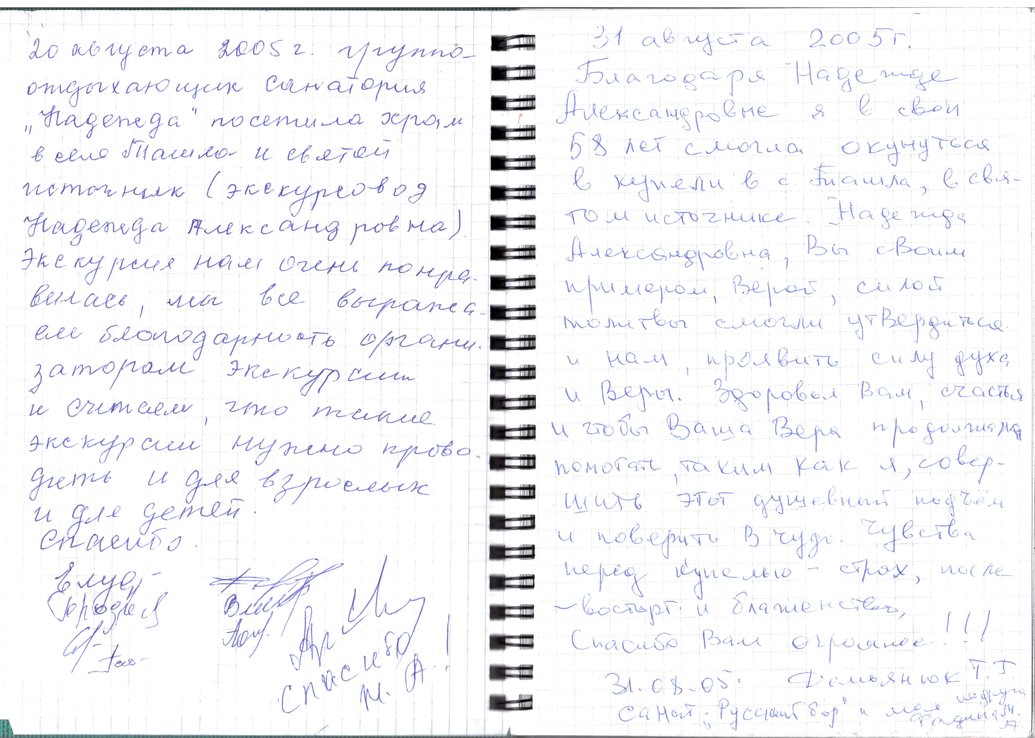 20 августа 2005 г. группа
отдыхающих санатория
„Надежда" посетила храм
в село Ташла и святой
источник (экскурсовод
Надежда Александровна).
Экскурсия нам очень понра-
вилась, мы все выража-
ем благодарность органи-
заторам экскурсии
и считаем, что такие
экскурсии нужно прово-
дить и для взрослых
и для детей.
Спасибо.
спасибо
Н. А.!
31 августа 2005 г.
Благодаря Надежде
Александровне я в свои
58 лет смогла окунуться
в купели в с. Ташла, в свя-
том источнике. Надежда
Александровна, Вы своим
примером, Верой, силой
молитвы смогли утвердиться
и нам, проявить силу духа
и Веры. Здоровья Вам, счастья
и чтобы Ваша Вера продолжала
помогать, таким как я, совер-
шить этот душевный подъём
и поверить в чудо. Чувства
перед купелью – страх, после
– восторг и блаженство,
Спасибо Вам огромное!!!
31.08.05. Демьянюк Т. Г.
санат. „Русский бор" и моя подруга